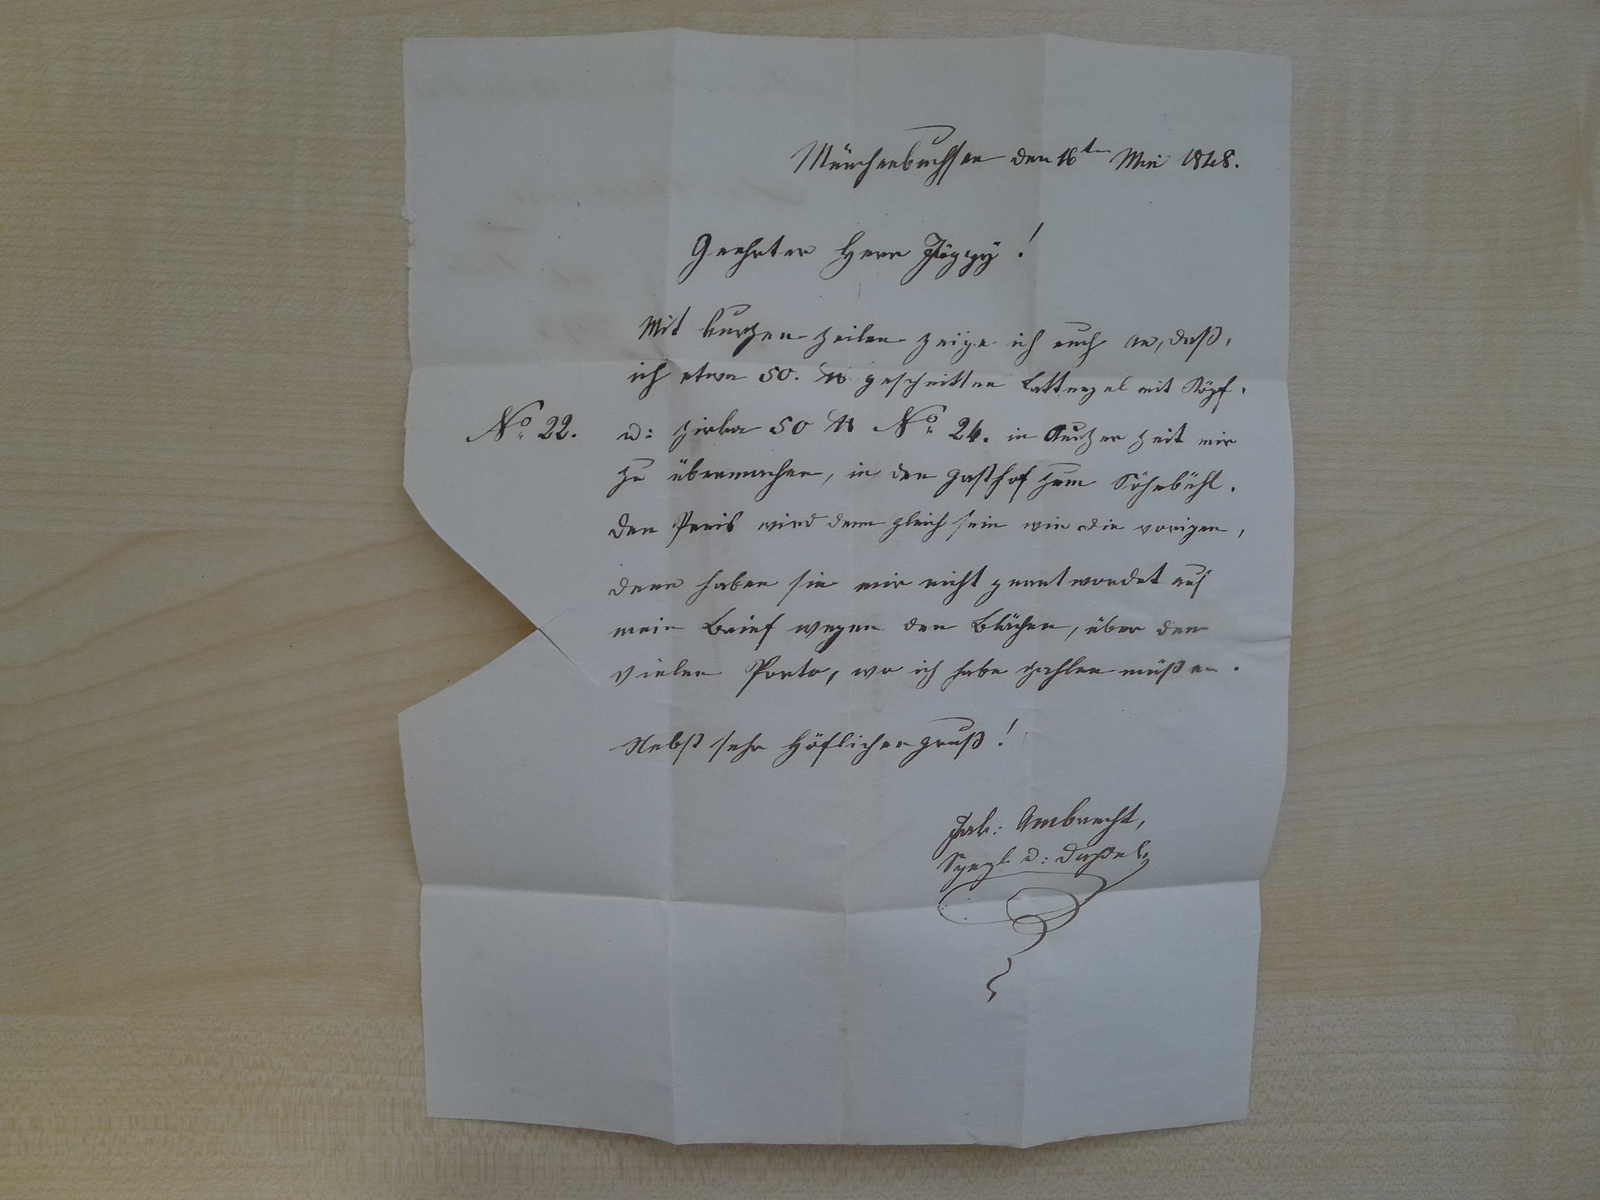 Münchenbuchsee den 16ten Mai 1848.
Geehrter Herr Jäggÿ!
Mit kurzen Zeilen zeige ich euch an, daß,
ich etwa 50. ℔ geschnitten Lattnegel mit Köpf,
No 22. u: zirka 50 ℔ No 24. in kurzer Zeit mir
zu übermachen, in den Gasthof zum
den Preis wird denn gleich sein wie die vorigen,
denn haben sie mir nicht geantwordet auf
mein Brief wegen den Blächen, über den
vielen Porto, wo ich habe zahlen müßen.
Nebst sehr Höflichen gruß!
Jak: Ambrecht,
u: